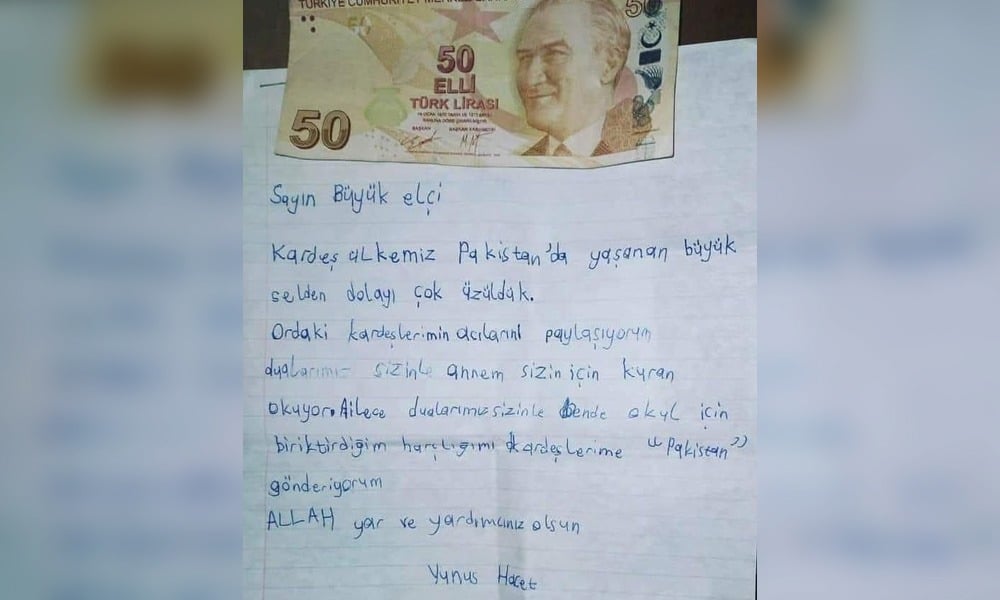 TÜRKİYE CUMHURİYET MERKEZ
50
50
50
ELLİ
TÜRK LİRASI
50
Sayın Büyük elçi
Kardeş ülkemiz Pakistan'da yaşanan büyük
selden dolayı çok üzüldük.
Ordaki kardeşlerimin acılarını paylaşıyorum
dualarımız sizinle annem sizin için kuran
okuyor. Ailece dualarımız sizinle bende okul için
biriktirdiğim harçlığımı kardeşlerime "Pakistan"
gönderiyorum
ALLAH yar ve yardımcınız olsun
Yunus Hacet